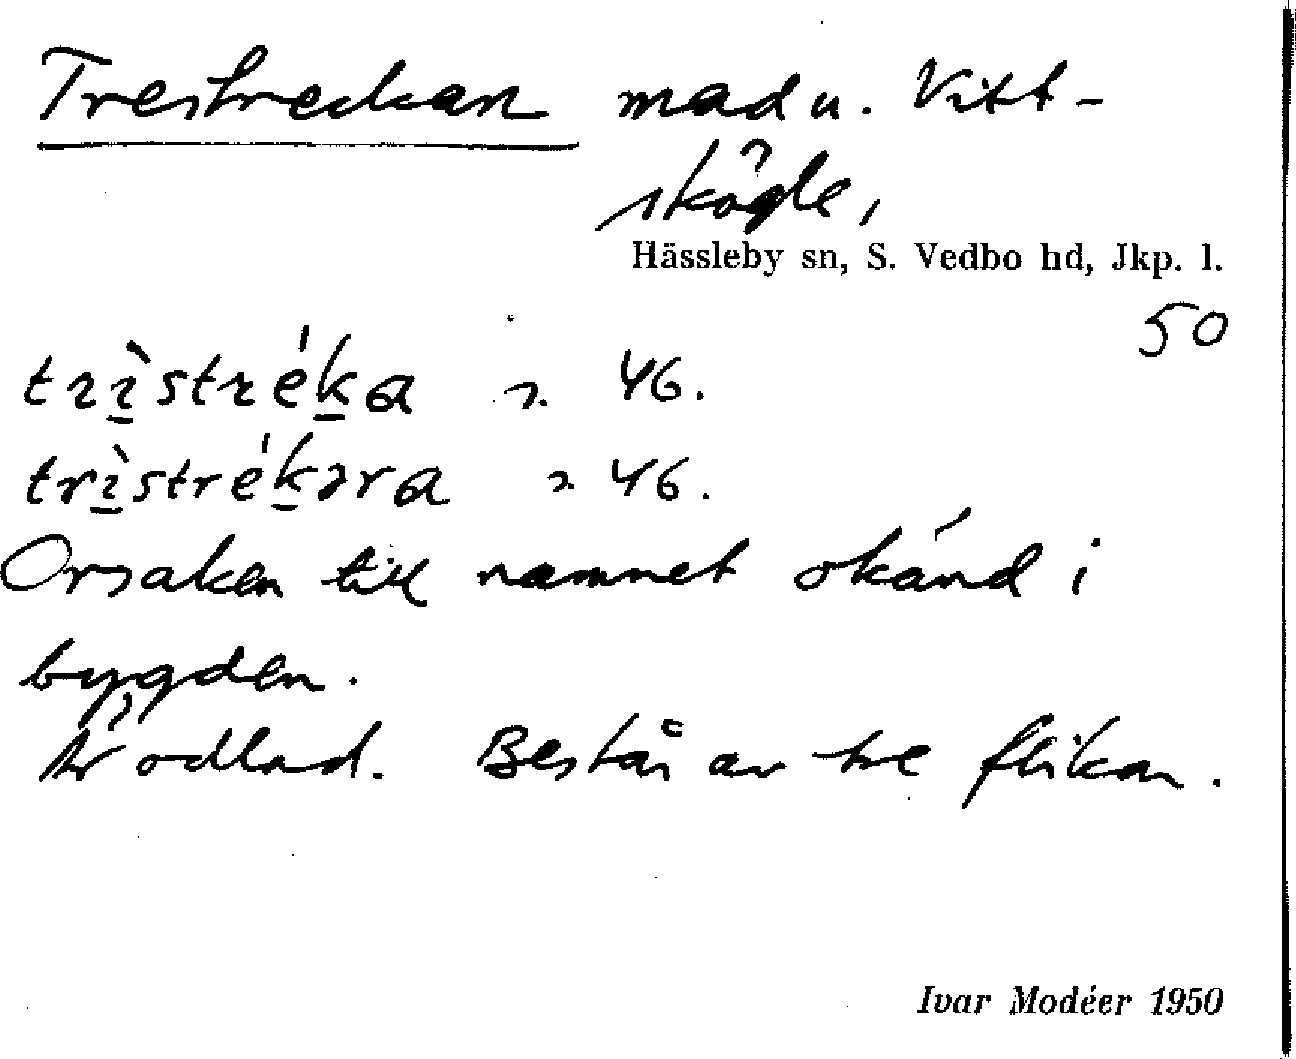 Trestreckan mad u. Vitt-
skögle,
Hässleby sn, S. Vedbo hd, Jkp. l.
50
trìstréka 46.
trìstrékəra 46.
Orsaken till namnet okänd i
bygden.
Är odlad. Består av tre flikar.
Ivar Modéer 1950